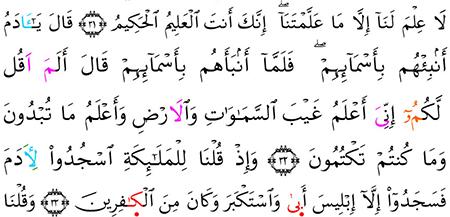 لَا عِلْمَ لَنَآ إِلَّا مَا عَلَّمْتَنَآۖ إِنَّكَ أَنتَ الْعَلِيمُ الْحَكِيمُ ﴿٣١﴾ قَالَ يَـٰٓـَٔادَمُ
أَنۢبِئْهُم بِأَسْمَآئِهِمْۖ فَلَمَّآ أَنۢبَأَهُم بِأَسْمَآئِهِمْ قَالَ أَلَمَ اَقُل
لَّكُمُۥٓ إِنِّىَ أَعْلَمُ غَيْبَ السَّمَـٰوَٰتِ وَالَارْضِ وَأَعْلَمُ مَا تُبْدُونَ
وَمَا كُنتُمْ تَكْتُمُونَ ﴿٣٢﴾ وَإِذْ قُلْنَا لِلْمَلَـٰٓئِكَةِ اسْجُدُواْ لِأٓدَمَ
فَسَجَدُوٓاْ إِلَّآ إِبْلِيسَ أَبىٰ وَاسْتَكْبَرَ وَكَانَ مِنَ الْكَـٰفِرِينَ ﴿٣٣﴾ وَقُلْنَا